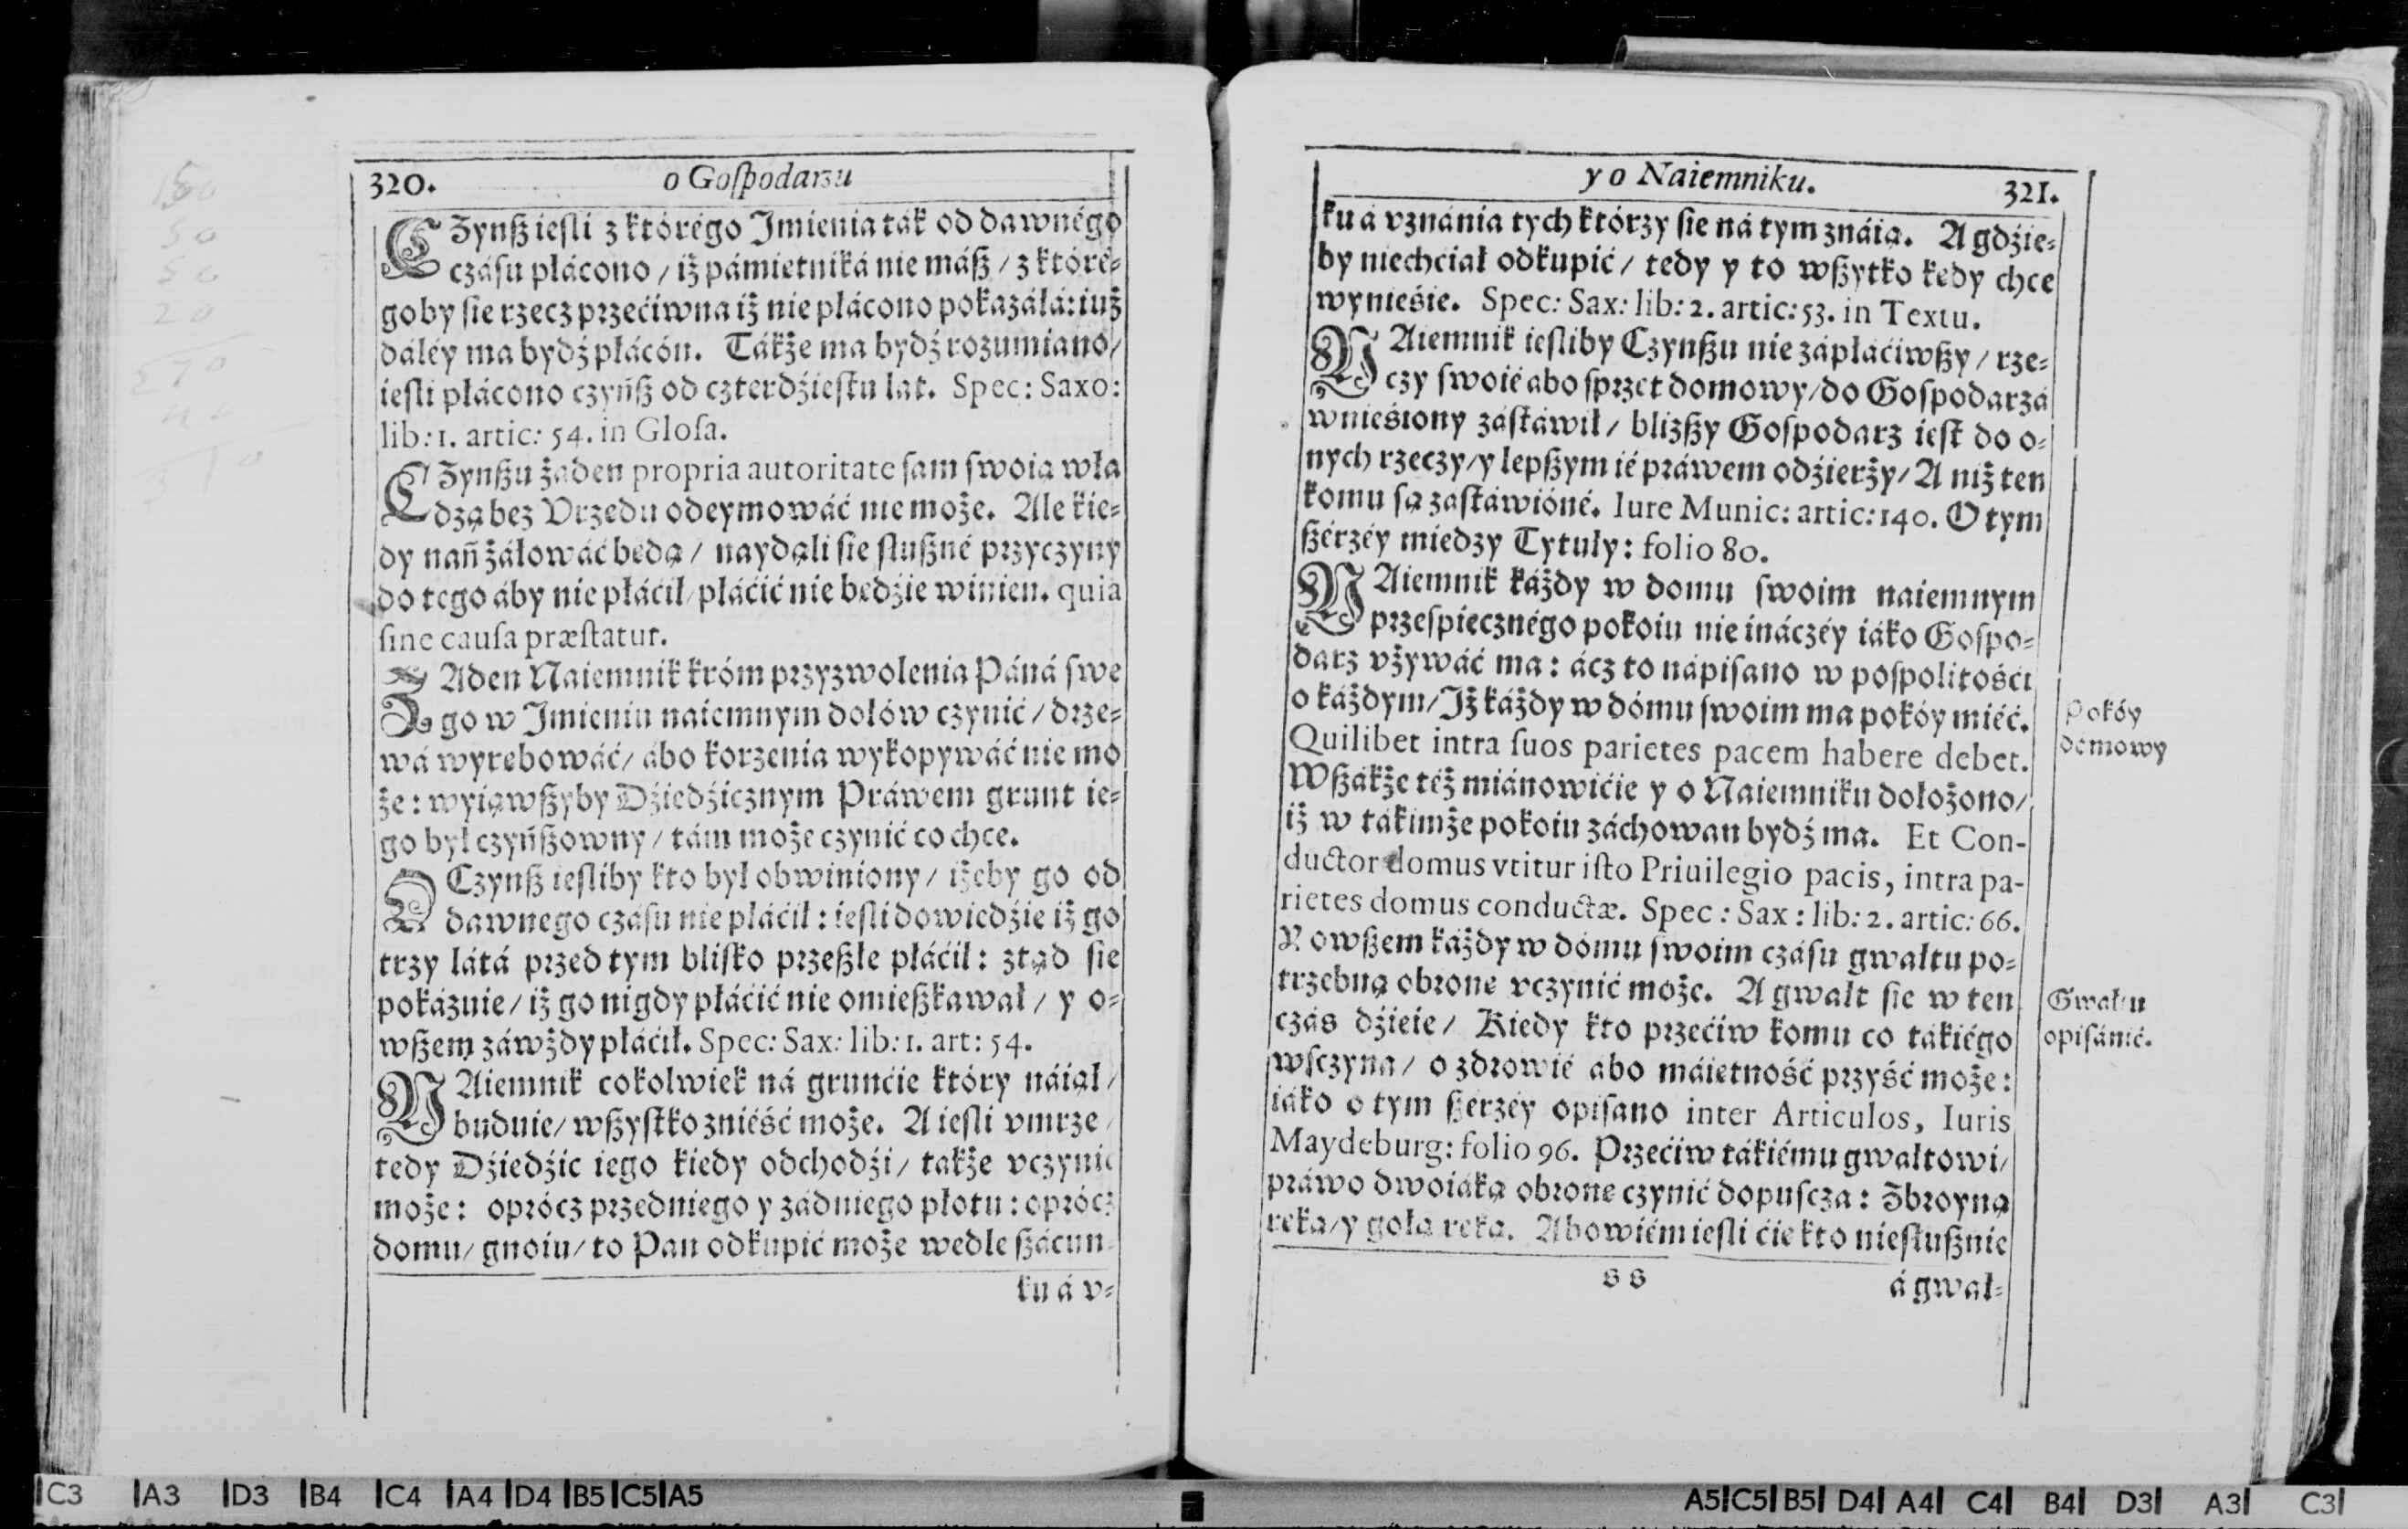 320. o Goſpodarzu
CZynß ieſli z którégo Imienia ták od dawnégo
czáſu płácono / iż pámiętniká nie máß / z któré-
goby ſie rzecz przećiwna iż nie płácono pokazáłá: iuż
dáléy ma bydź płácón. Tákże ma bydź rozumiano/
ieſli płácono czynß od czterdźieſtu lat. Spec: Saxo:
lib: 1. artic: 54. in Gloſa.
CZynßu żaden propria autoritate ſam ſwoią wła
dzą bez Vrzędu odeymowáć nie może. Ale kie-
dy nań żáłowáć będą / naydąli ſie ſłußné przyczyny
do tego áby nie płáćił / płáćić nie będźie winien. quia
ſine cauſa præſtatur.
ŻAden Naiemnik króm przyzwolenia Páná ſwe
go w Imieniu naiemnym dołów czynić / drze-
wá wyrębowáć / ábo korzenia wykopywáć nie mo
że: wyiąwßyby Dźiedźicznym Práwem grunt ie-
go był czynßowny / tám może czynić co chce.
O Czynß ieſliby kto był obwiniony / iżeby go od
dawnego czáſu nie płáćił: ieſli dowiedźie iż go
trzy látá przed tym bliſko przeßłe płáćił: ztąd ſie
pokázuie / iż go nigdy płáćić nie omießkawał / y o-
wßem záwżdy płáćił. Spec: Sax: lib: 1. art: 54.
NAiemnik cokolwiek ná grunćie który náiął /
buduie / wßyſtko znieść może. A ieſli vmrze /
tedy Dźiedźic iego kiedy odchodźi / także vczynić
może: oprócz przedniego y zádniego płotu: oprócz
domu / gnoiu / to Pan odkupić może wedle ßácun-
ku á v-
150
50
50
20
y o Naiemniku. 321.
ku á vznánia tych którzy ſie ná tym znáią. A gdźie-
by niechciał odkupić / tedy y to wßytko kędy chce
wynieśie. Spec: Sax: lib: 2. artic: 53. in Textu.
NAiemnik ieſliby Czynßu nie zápłáćiwßy / rze-
czy ſwoié abo ſprzęt domowy / do Goſpodarzá
wnieśiony záſtáwił / bliżßy Goſpodarz ieſt do o-
nych rzeczy / y lepßym ié práwem odźierży / A niż ten
komu ſą zaſtáwióné. Iure Munic: artic: 140. O tym
ßérzéy miedzy Tytuły: folio 80.
NAiemnik káżdy w domu ſwoim naiemnym
przeſpiecznégo pokoiu nie ináczéy iáko Goſpo-
darz vżywáć ma: ácz to nápiſano w poſpolitośći
o káżdym / Iż káżdy w dómu ſwoim ma pokóy miéć.
Quilibet intra ſuos parietes pacem habere debet.
Wßákże téż miánowićie y o Naiemniku dołożono /
iż w tákimże pokoiu záchowan bydź ma. Et Con-
ductor domus vtitur iſto Priuilegio pacis, intra pa-
rietes domus conductæ. Spec: Sax: lib: 2. artic: 66.
Y owßem káżdy w dómu ſwoim czáſu gwałtu po-
trzebną obronę vczynić może. A gwałt ſie w ten
czás dźieie / Kiedy kto przećiw komu co tákiégo
wſczyna / o zdrowié abo máiętność przyść może:
iáko o tym ßérzéy opiſano inter Articulos, Iuris
Maydeburg: folio 96. Przećiw tákiému gwałtowi /
práwo dwoiáką obronę czynić dopuſcza: Zbroyną
ręką / y gołą ręką. Abowiém ieſli ćię kto nieſłußnie
S s á gwał-
Pokóy
domowy
Gwałtu
opiſánié.
C3 A3 D3 B4 C4 A4 D4 B5 C5 A5
A5 C5 B5 D4 A4 C4 B4 D3 A3 C3